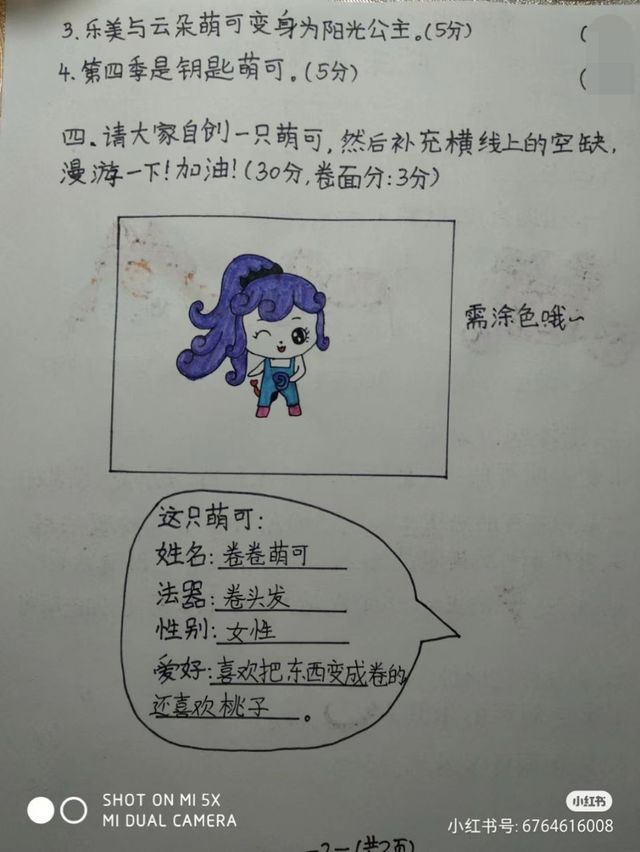 3.乐美与云朵萌可变身为阳光公主。(5分) (
4.第四季是钥匙萌可。(5分) (
四.请大家自创一只萌可,然后补充横线上的空缺,
漫游一下!加油!(30分,卷面分:3分)
需涂色哦~
这只萌可:
姓名:卷卷萌可
法器:卷头发
性别:女性
爱好:喜欢把东西变成卷的
还喜欢桃子。
SHOT ON MI 5X
MI DUAL CAMERA
小红书
小红书号: 6764616008
-2-(共2页)